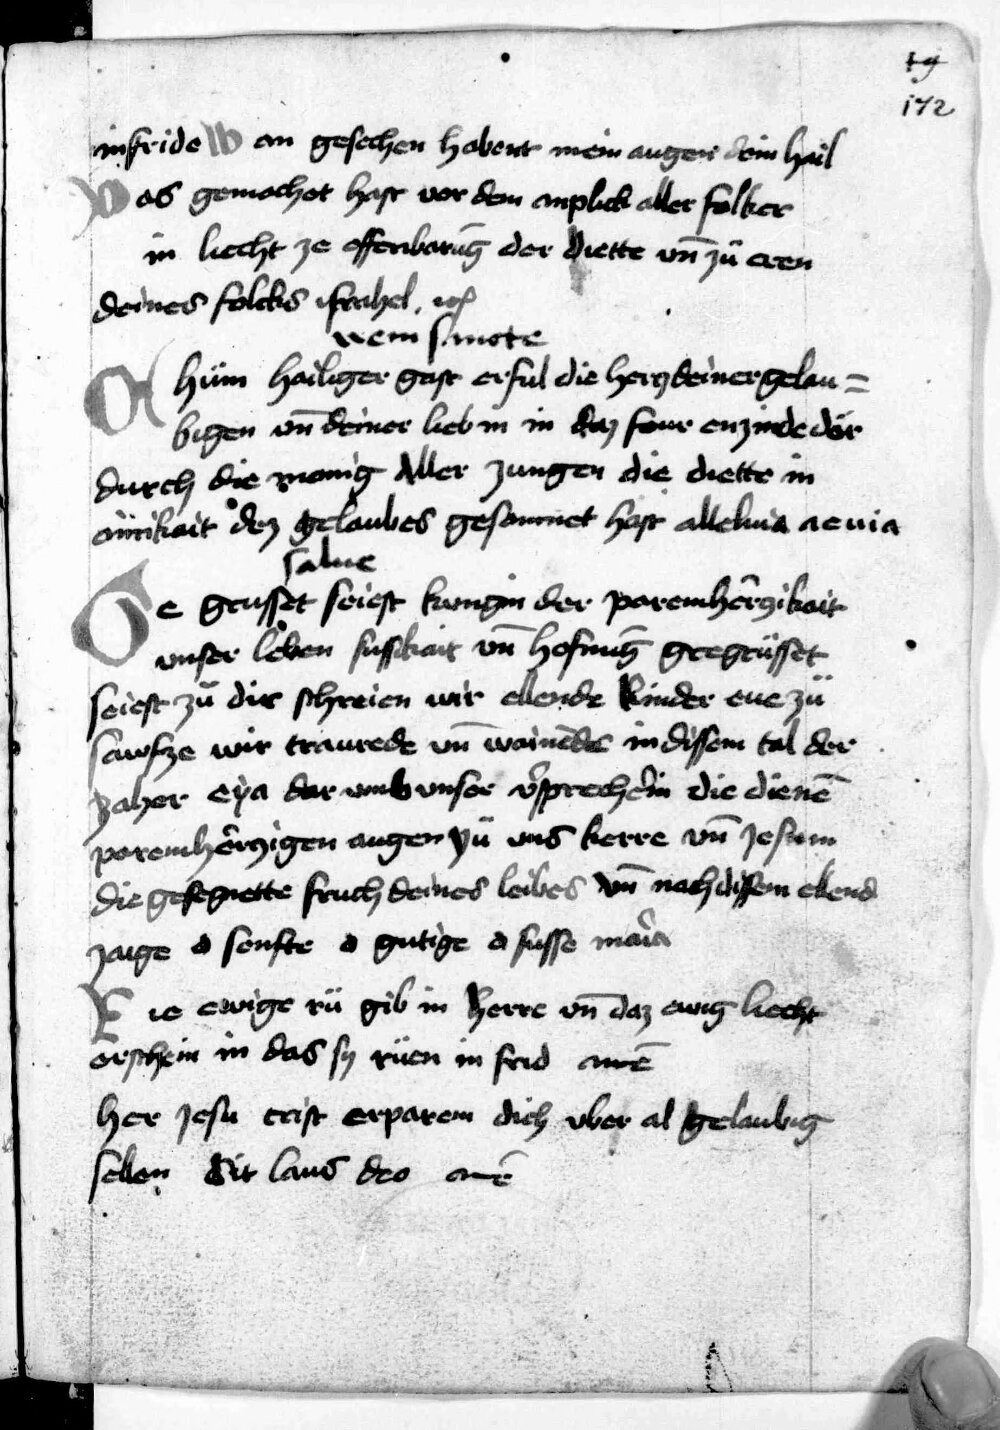 19
172
in fride Wan gesechen habent mein augen dein hail
Was gemachet hast vor dem anplick aller folker
in liecht ze offenbarūg der diette vn̄ zů eren
deines folcks israhel.
veni sancte
Chüm hailiger gast erful die herz deiner gelau=
bigen vn̄ deiner lieb in in daz feur enzinde dür
durch die manig aller zungen die diette in
ainikait dez gelaubes gesamnet hast alleluia aeuia
salue
Ge grusset seiest kungin der paremherczikait
vnser leben sussikait vn̄ hofnūg gegrüsset
seiest zů dir schreien wir ellende kinder eue zů
sawfze wir traurede vn̄ wainēde in dissem tal der
zaher eya dar vmb vnser v̓sprecherin die dienē
paremherczigen augen zů vns kerre vn̄ Jesum
die gesegnette fruch deines leibes vn̄ nach dissem ellend
zaige o senfte o gutige o susse maria
Die ewige rü gib in herre vn̄ daz ewig liecht
erschein in das sy rüen in frid amē
her Jesu crist erparem dich vber al gelaubig
sellen Sit laus deo amē